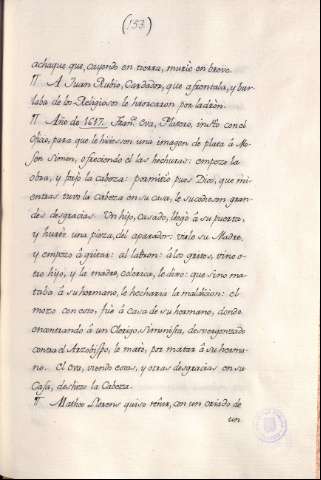 (153)
achaque que, cayendo en tierra, muriò en breve.
¶ A Juan Rubio, Cardador, que afrontaba, y bur-
laba de los Religiosos le haorcaron por ladrón.
¶ Año de 1617. Fran.co Eva, Platero, instò con el
oficio, para que le hiciessen una imagen de plata â Mo-
sen Simon, ofreciendo el las hechuras: empezò la
obra, y trajo la cabeza: permitiò pues Dios, que mi-
entras tuvo la cabeza en su casa, le sucediessen gran-
des desgracias. Un hijo, casado, llegò â su puerta,
y hurtò una pieza, del aparador: viòle su Madre,
y empezò â gritar: al ladron: â los gritos, vino o-
tro hijo, y la madre, colerica, le dixo: que sino ma-
taba â su hermano, le hecharia la maldicion: el
mozo con esto, fuè â casa de su hermano, donde
encontrando â un Clerigo Simonista, desvergonzado
contra el Arzobispo, le matò, por matar â su herma-
no. El Eva, viendo estas, y otras desgracias en su
Casa, deshizo la Cabeza.
¶ Matheo Llorens quiso reñir, con un criado de
un